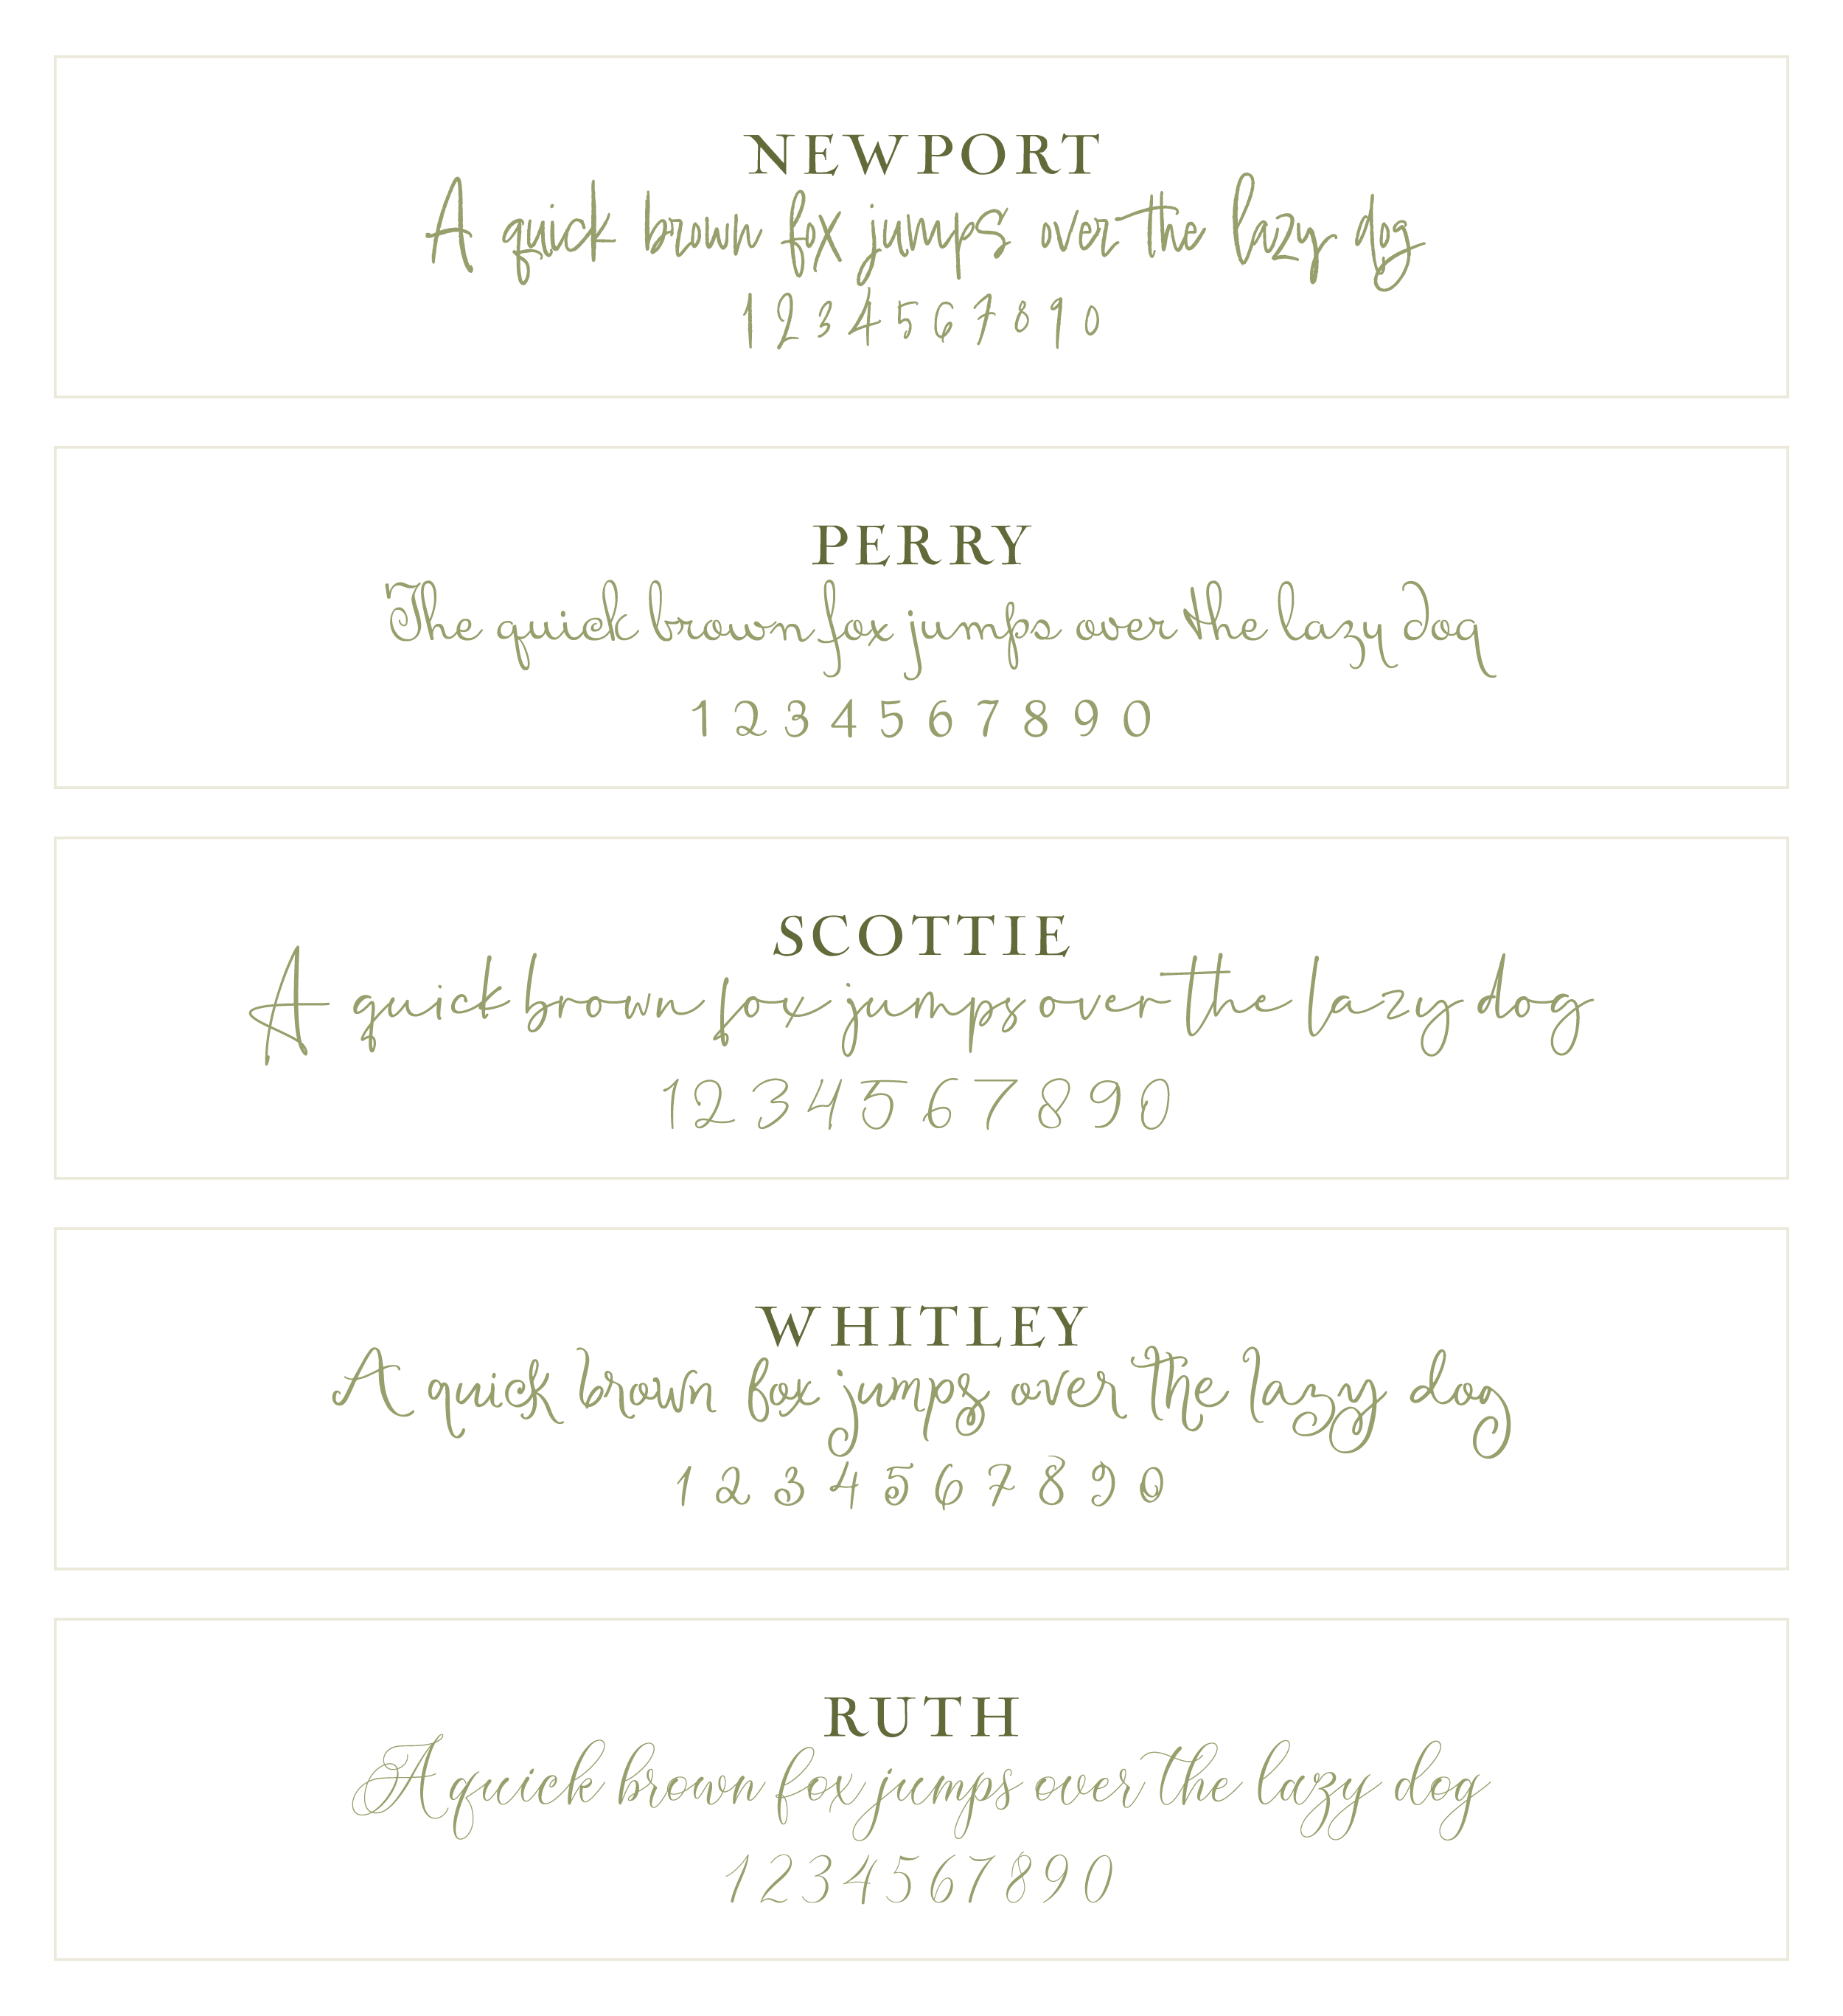 NEWPORT
A quick brown fox jumps over the lazy dog
1 2 3 4 5 6 7 8 9 0
PERRY
The quick brown fox jumps over the lazy dog
1 2 3 4 5 6 7 8 9 0
SCOTTIE
A quick brown fox jumps over the lazy dog
1 2 3 4 5 6 7 8 9 0
WHITLEY
A quick brown fox jumps over the lazy dog
1 2 3 4 5 6 7 8 9 0
RUTH
A quick brown fox jumps over the lazy dog
1 2 3 4 5 6 7 8 9 0